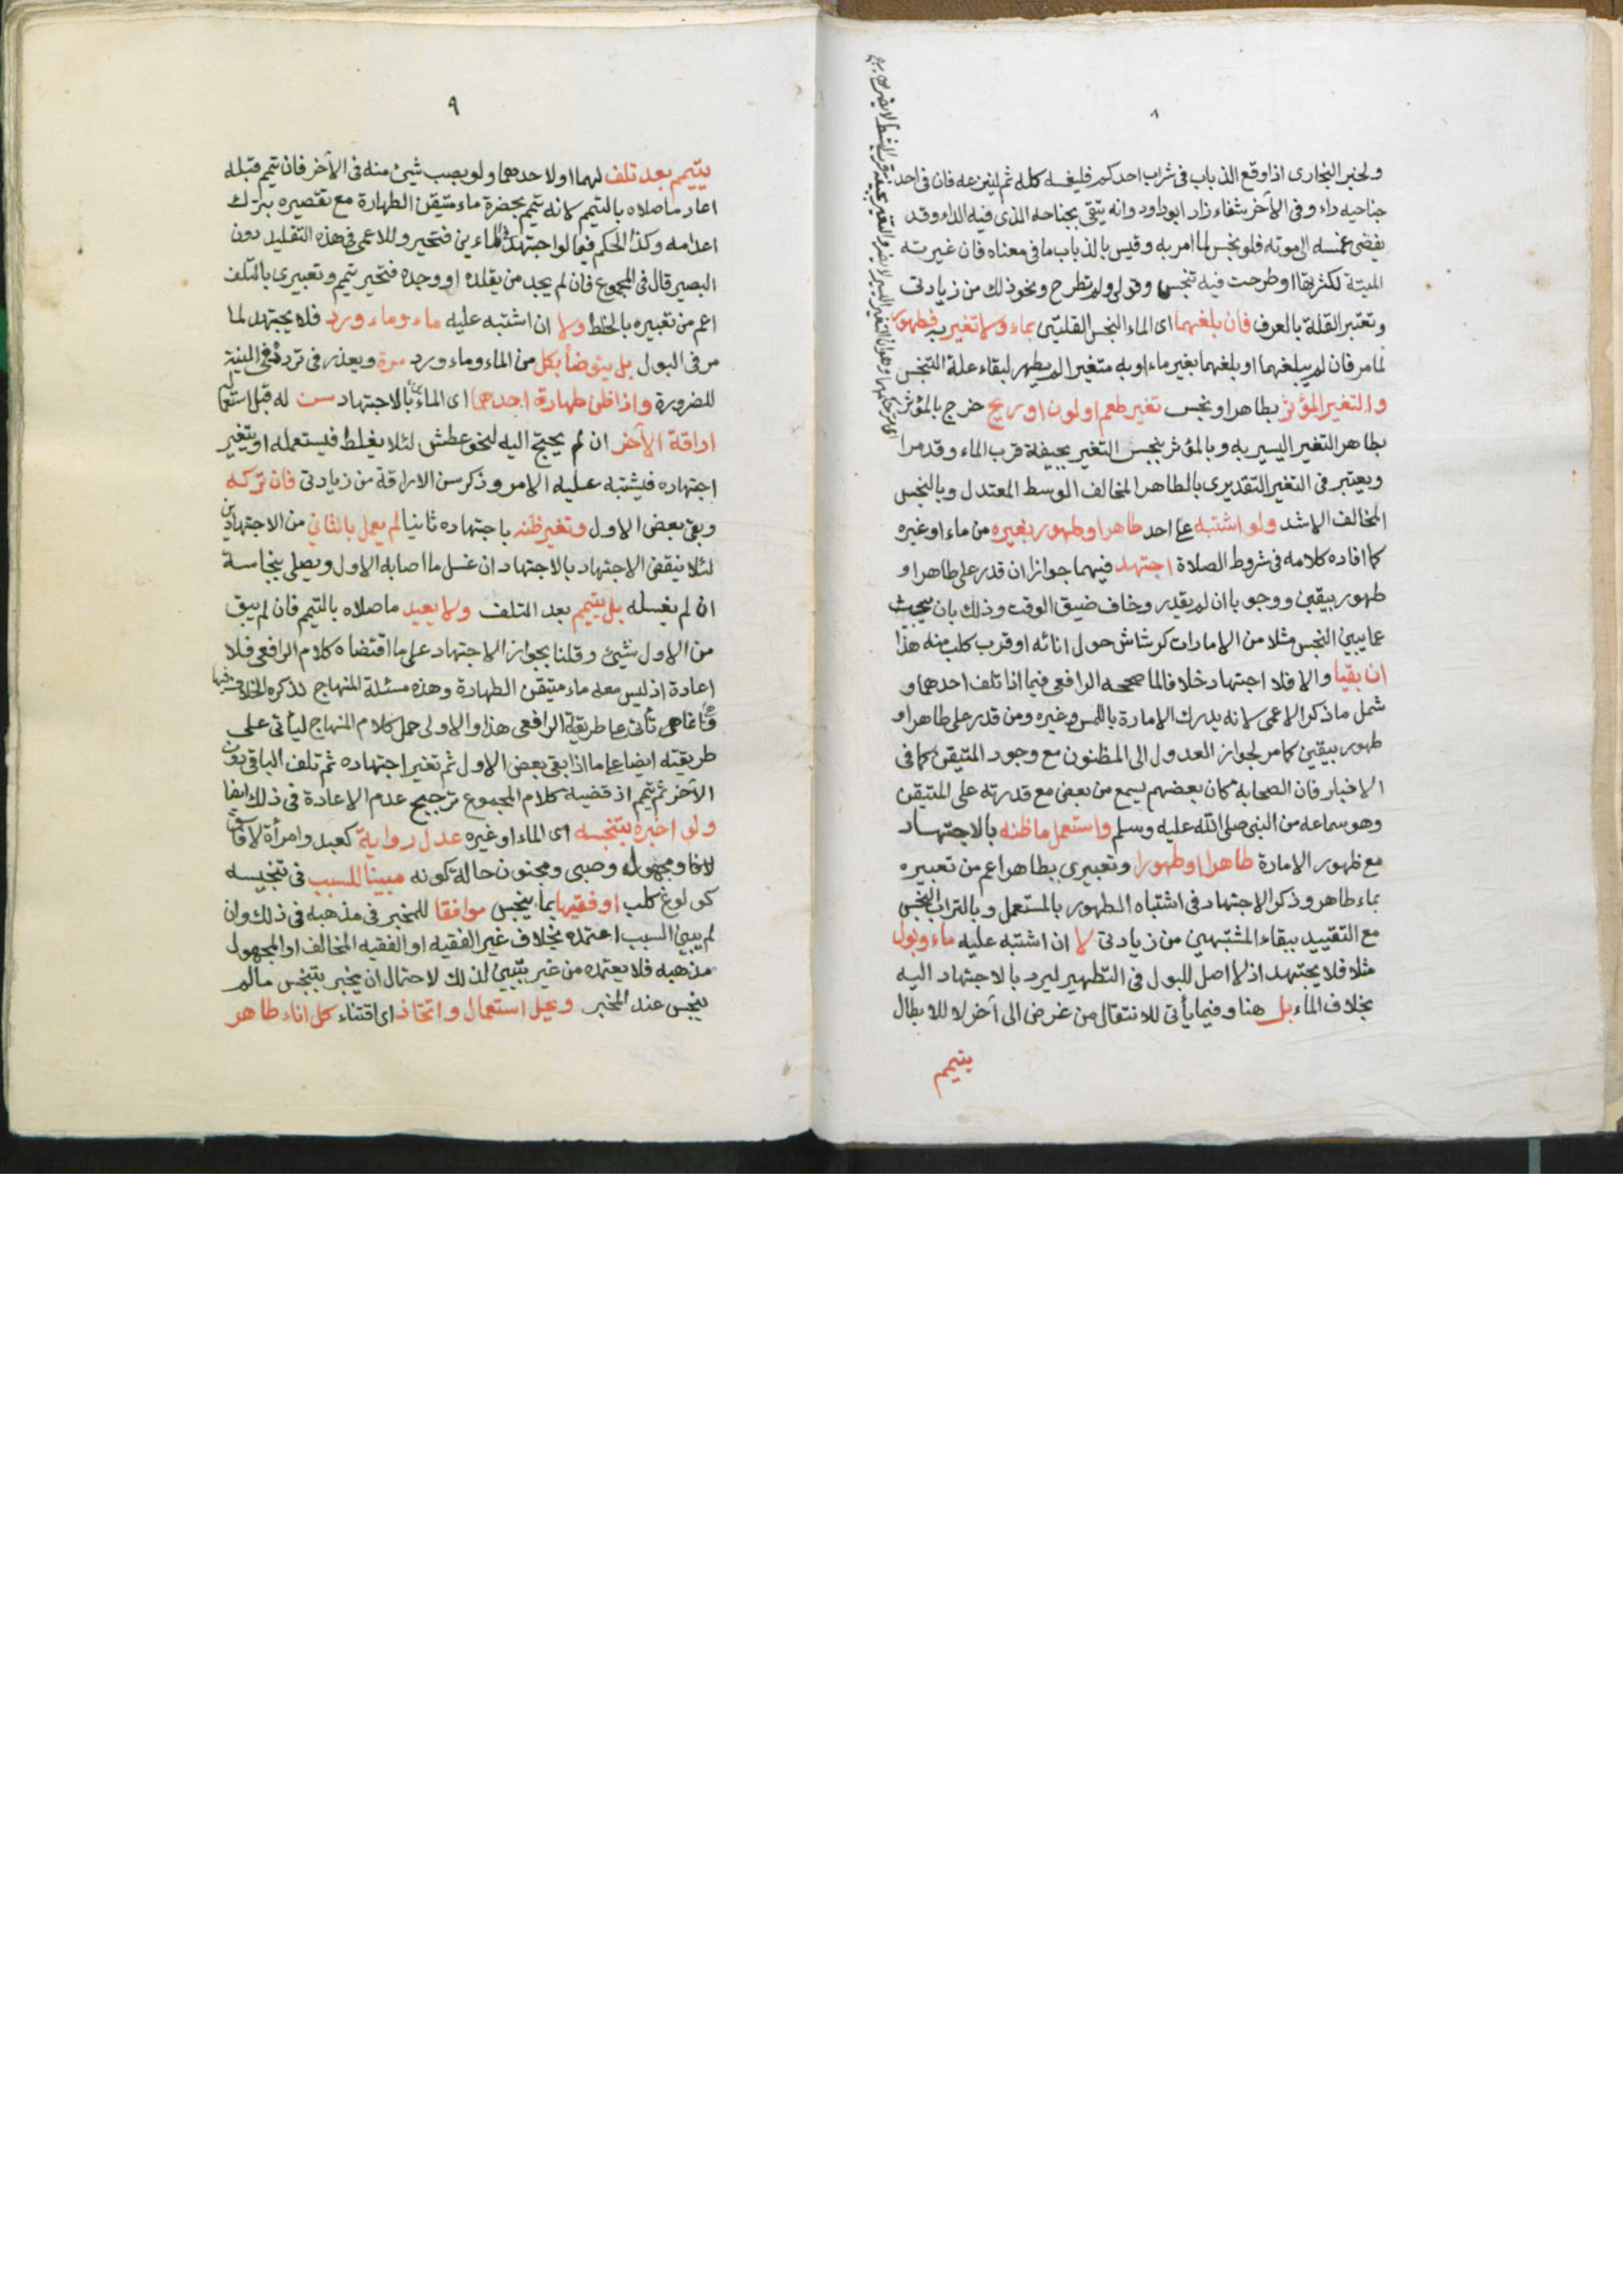 ٨
ولخبر البخارى اذا وقع الذباب فى شراب احدكم فليغمسه كله ثم لينزعه فان فى احد
جناحيه داء وفى الآخر شفاء زاد ابو داود وانه يتقى بجناحه الذى فيه الداء وقد
يفضى غمسه الى موته فلو نجس لما امر به وقيس بالذباب ما فى معناه فان غيرته
الميتة لكثرتها او طرحت فيه تنجس وقولى ولم تطرح ونحو ذلك من زيادتى
وتعتبر القلة بالعرف فان بلغهما اى الماء النجس القلتين بماء ولا تغير به فطهور
لما مر فان لم يبلغهما او بلغهما بغير ماء او به متغيرا لم يطهر لبقاء علة التنجس
والتغير المؤثر بطاهر او نجس تغير طعم او لون او ريح خرج بالمؤثر
بطاهر التغير اليسير به وبالمؤثر بنجس التغير بجيفة قرب الماء وقد مرا
ويعتبر فى التغير التقديرى بالطاهر المخالف الوسط المعتدل وبالنجس
المخالف الاشد ولو اشتبه على احد طاهر او طهور بغيره من ماء او غيره
كما افاده كلامه فى شروط الصلاة اجتهد فيهما جوازا ان قدر على طاهر او
طهور بيقين ووجوبا ان لم يقدر وخاف ضيق الوقت وذلك بان يبحث
عما يبين النجس مثلا من الامارات كرشاش حول انائه او قرب كلب منه هذا
ان بقيا والا فلا اجتهاد خلافا لما صححه الرافعى فيما اذا تلف احدهما و
شمل ما ذكر الاعمى لانه يدرك الامارة باللمس وغيره ومن قدر على طاهر او
طهور بيقين كما مر لجواز العدول الى المظنون مع وجود المتيقن كما فى
الاخبار فان الصحابة كان بعضهم يسمع من بعض مع قدرته على المتيقن
وهو سماعه من النبى صلى الله عليه وسلم واستعمل ما ظنه بالاجتهاد
مع ظهور الامارة طاهرا او طهورا وتعبيرى بطاهر اعم من تعبيره
بماء طاهر وذكر الاجتهاد فى اشتباه الطهور بالمستعمل وبالتراب النجس
مع التقييد ببقاء المشتبهين من زيادتى لا ان اشتبه عليه ماء وبول
مثلا فلا يجتهد اذ لا اصل للبول فى التطهير ليرد بالاجتهاد اليه
بخلاف الماء بل هنا وفيما يأتى للانتقال من غرض الى آخر لا للابطال
يتيمم
٩
يتيمم بعد تلف لهما او لاحدهما ولو بصب شيئ منه فى الآخر فان تيمم قبله
اعاد ما صلاه بالتيمم لانه تيمم بحضرة ماء متيقن الطهارة مع تقصيره بترك
اعدامه وكذا الحكم فيما لو اجتهد فى الماءين فتحير وللاعمى فى هذه التقليد دون
البصير قال فى المجموع فان لم يجد من يقلده او وجده فتحير تيمم وتعبيرى بالتلف
اعم من تعبيره بالخلط ولا ان اشتبه عليه ماء وماء ورد فلا يجتهد لما
مر فى البول بل يتوضأ بكل من الماء وماء ورد مرة ويعذر فى تردده فى النية
للضرورة واذا ظن طهارة احدهما اى الماءين بالاجتهاد سن له قبل استعماله
اراقة الآخر ان لم يحتج اليه لنحو عطش لئلا يغلط فيستعمله او يتغير
اجتهاده فيشتبه عليه الامر وذكر سن الاراقة من زيادتى فان تركه
وبقى بعض الاول وتغير ظنه باجتهاده ثانيا لم يعمل بالثانى من الاجتهادين
لئلا ينقض الاجتهاد بالاجتهاد ان غسل ما اصابه الاول ويصلى بنجاسة
ان لم يغسله بل يتيمم بعد التلف ولا يعيد ما صلاه بالتيمم فان لم يبق
من الاول شيئ وقلنا بجواز الاجتهاد على ما اقتضاه كلام الرافعى فلا
اعادة اذ ليس معه ماء متيقن الطهارة وهذه مسئلة المنهاج لذكره الخلاف فيها
وانما تأتى على طريقة الرافعى هذا والاولى حمل كلام المنهاج ليأتى على
طريقته ايضا على ما اذا بقى بعض الاول ثم تغير اجتهاده ثم تلف الباقى دون
الآخر ثم تيمم اذ قضية كلام المجموع ترجيح عدم الاعادة فى ذلك ايضا
ولو اخبره بتنجسه اى الماء او غيره عدل رواية كعبد وامرأة لا فاسق
ومجهول وصبى ومجنون حالة كونه مبينا للسبب فى تنجيسه
كولوغ كلب او فقيها بما ينجس موافقا للمخبر فى مذهبه فى ذلك وان
لم يبين السبب اعتمده بخلاف غير الفقيه او الفقيه المخالف او المجهول
مذهبه فلا يعتمده من غير تبيين لذلك لاحتمال ان يخبر بتنجس ما لم
ينجس عند المخبر ويحل استعمال واتخاذ اى اقتناء كل اناء طاهر